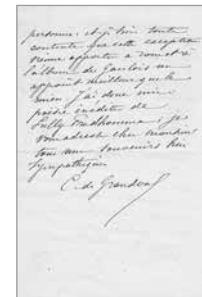 personne : et je suis toute
contente que cette exception
vienne apporter à
l'album du Gaulois un
appoint meilleur que le
mien. J'ai donc mis
poésie inédite de
Sully Prudhomme ; je
vous adresse cher monsieur
tous mes souvenirs bien
sympathiques
C. de Grandval